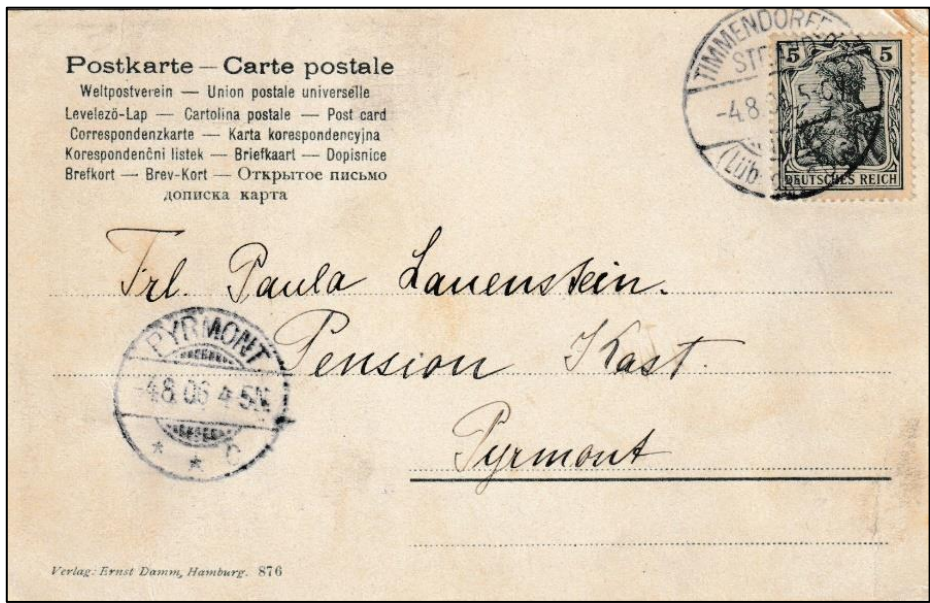 Postkarte – Carte postale
Weltpostverein — Union postale universelle
Levelező-Lap — Cartolina postale — Post card
Correspondenzkarte — Karta korespondencyjna
Korespondenční listek — Briefkaart — Dopisnice
Brefkort — Brev-Kort — Открытое письмо
дописка карта
TIMMENDORFER
-4.8.
(Lüb.
5 5
DEUTSCHES REICH
Frl. Paula Lauenstein.
Pension Kast.
Pyrmont
PYRMONT
-4.8.06 4-5N.
* * C
Verlag: Ernst Damm, Hamburg. 876